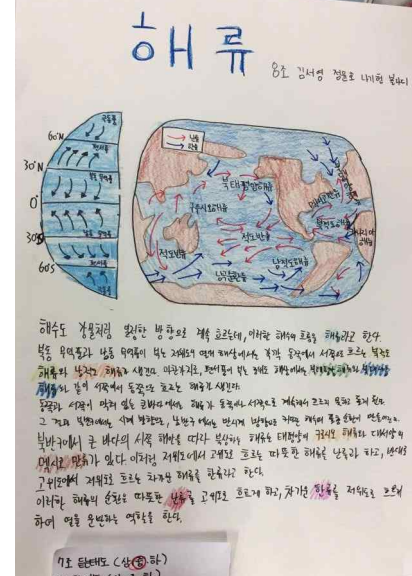 해류
용조 김서영 정문로 나기현
극동풍
60°N
편서풍
30°N
북동 무역풍
0°
30S
남동 무역풍
편서풍
60S
극동풍
난류
한류
북태평양해류
쿠로시오해류
적도반류
적도반류
멕시코만류
북적도해류
남적도해류
남극순환류
해수도 강물처럼 일정한 방향으로 계속 흐르는데, 이러한 해수의 흐름을 해류라고 한다.
북동 무역풍과 남동 무역풍이 부는 저위도의 열대 해상에서는 동쪽에서 서쪽으로 흐르는 북적도
해류와 남적도 해류가 생긴다. 마찬가지로, 편서풍이 부는 중위도 해상에서는 북태평양 해류와 북대서양
해류와 같이 서쪽에서 동쪽으로 흐르는 해류가 생긴다.
동쪽과 서쪽이 막혀 있는 큰바다에서는 해류가 동쪽이나 서쪽으로 계속해서 흐르지 못하고 돌게 된다.
그 결과 북반구에서는 시계 방향으로, 남반구에서는 반시계 방향으로 커다란 해수의 표층순환이 만들어진다.
북반구에서 큰 바다의 서쪽 해안을 따라 북상하는 해류는 태평양의 쿠로시오 해류와 대서양의
멕시코 만류가 있다. 이처럼 저위도에서 고위도로 흐르는 따뜻한 해류를 난류라고 하고, 반대로
고위도에서 저위도로 흐르는 차가운 해류를 한류라고 한다.
이러한 해류의 순환은 따뜻한 난류를 고위도로 흐르게 하고, 차가운 한류를 저위도로 흐르게
하여 열을 운반하는 역할을 한다.
7조 듣는태도 (상, 중, 하)